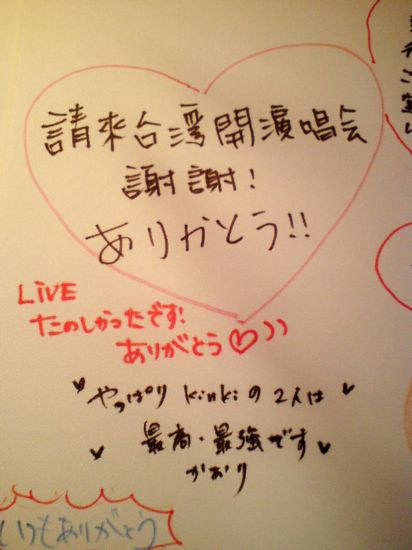 請來台湾開演唱会
謝謝!
ありがとう!!
LIVE
たのしかったです!
ありがとう
やっぱり kinkiの2人は
最高・最強です
かおり
いつもありがとう